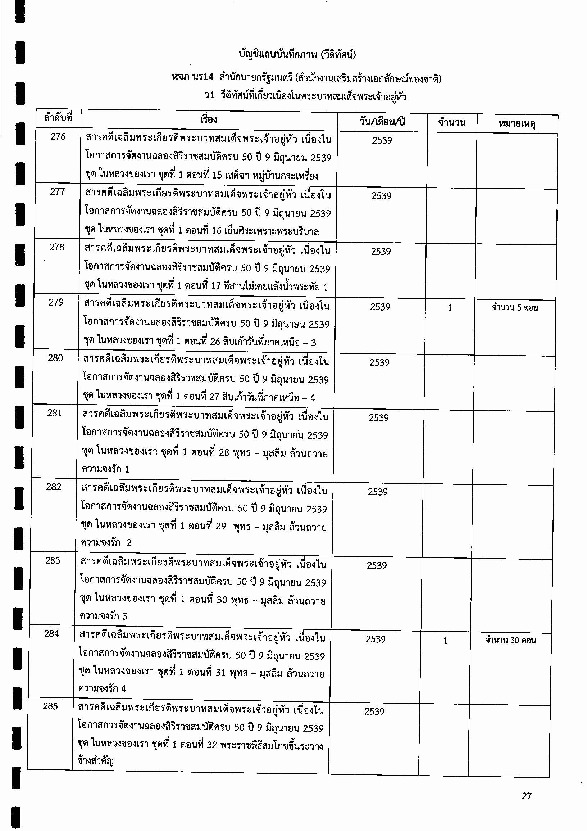 บัญชีแถบบันทึกภาพ (วีดิทัศน์)
หจภ นร14 สำนักนายกรัฐมนตรี (สำนักงานเสริมสร้างเอกลักษณ์ของชาติ)
ว1 วีดิทัศน์ที่เกี่ยวเนื่องในพระบาทสมเด็จพระเจ้าอยู่หัว
ลำดับที่ เรื่อง วัน/เดือน/ปี จำนวน หมายเหตุ
276 สารคดีเฉลิมพระเกียรติพระบาทสมเด็จพระเจ้าอยู่หัว เนื่องใน 2539
โอกาสการจัดงานฉลองสิริราชสมบัติครบ 50 ปี 9 มิถุนายน 2539
ชุด ในหลวงของเรา ชุดที่ 1 ตอนที่ 15 เสด็จฯ หมู่บ้านกะเหรี่ยง
277 สารคดีเฉลิมพระเกียรติพระบาทสมเด็จพระเจ้าอยู่หัว เนื่องใน 2539
โอกาสการจัดงานฉลองสิริราชสมบัติครบ 50 ปี 9 มิถุนายน 2539
ชุด ในหลวงของเรา ชุดที่ 1 ตอนที่ 16 เย็นศิระเพราะพระบริบาล
278 สารคดีเฉลิมพระเกียรติพระบาทสมเด็จพระเจ้าอยู่หัว เนื่องใน 2539
โอกาสการจัดงานฉลองสิริราชสมบัติครบ 50 ปี 9 มิถุนายน 2539
ชุด ในหลวงของเรา ชุดที่ 1 ตอนที่ 17 อีสานไม่เคยแล้งน้ำพระทัย 1
279 สารคดีเฉลิมพระเกียรติพระบาทสมเด็จพระเจ้าอยู่หัว เนื่องใน 2539 1 จำนวน 5 ตอน
โอกาสการจัดงานฉลองสิริราชสมบัติครบ 50 ปี 9 มิถุนายน 2539
ชุด ในหลวงของเรา ชุดที่ 1 ตอนที่ 26 สิบเก้าวันที่ภาคเหนือ – 3
280 สารคดีเฉลิมพระเกียรติพระบาทสมเด็จพระเจ้าอยู่หัว เนื่องใน 2539
โอกาสการจัดงานฉลองสิริราชสมบัติครบ 50 ปี 9 มิถุนายน 2539
ชุด ในหลวงของเรา ชุดที่ 1 ตอนที่ 27 สิบเก้าวันที่ภาคเหนือ – 4
281 สารคดีเฉลิมพระเกียรติพระบาทสมเด็จพระเจ้าอยู่หัว เนื่องใน 2539
โอกาสการจัดงานฉลองสิริราชสมบัติครบ 50 ปี 9 มิถุนายน 2539
ชุด ในหลวงของเรา ชุดที่ 1 ตอนที่ 28 พุทธ – มุสลิม ล้วนถวาย
ความจงรัก 1
282 สารคดีเฉลิมพระเกียรติพระบาทสมเด็จพระเจ้าอยู่หัว เนื่องใน 2539
โอกาสการจัดงานฉลองสิริราชสมบัติครบ 50 ปี 9 มิถุนายน 2539
ชุด ในหลวงของเรา ชุดที่ 1 ตอนที่ 29 พุทธ – มุสลิม ล้วนถวาย
ความจงรัก 2
283 สารคดีเฉลิมพระเกียรติพระบาทสมเด็จพระเจ้าอยู่หัว เนื่องใน 2539
โอกาสการจัดงานฉลองสิริราชสมบัติครบ 50 ปี 9 มิถุนายน 2539
ชุด ในหลวงของเรา ชุดที่ 1 ตอนที่ 30 พุทธ – มุสลิม ล้วนถวาย
ความจงรัก 3
284 สารคดีเฉลิมพระเกียรติพระบาทสมเด็จพระเจ้าอยู่หัว เนื่องใน 2539 1 จำนวน 30 ตอน
โอกาสการจัดงานฉลองสิริราชสมบัติครบ 50 ปี 9 มิถุนายน 2539
ชุด ในหลวงของเรา ชุดที่ 1 ตอนที่ 31 พุทธ – มุสลิม ล้วนถวาย
ความจงรัก 4
285 สารคดีเฉลิมพระเกียรติพระบาทสมเด็จพระเจ้าอยู่หัว เนื่องใน 2539
โอกาสการจัดงานฉลองสิริราชสมบัติครบ 50 ปี 9 มิถุนายน 2539
ชุด ในหลวงของเรา ชุดที่ 1 ตอนที่ 32 พระราชพิธีสมโภชขึ้นระวาง
ช้างสำคัญ
27